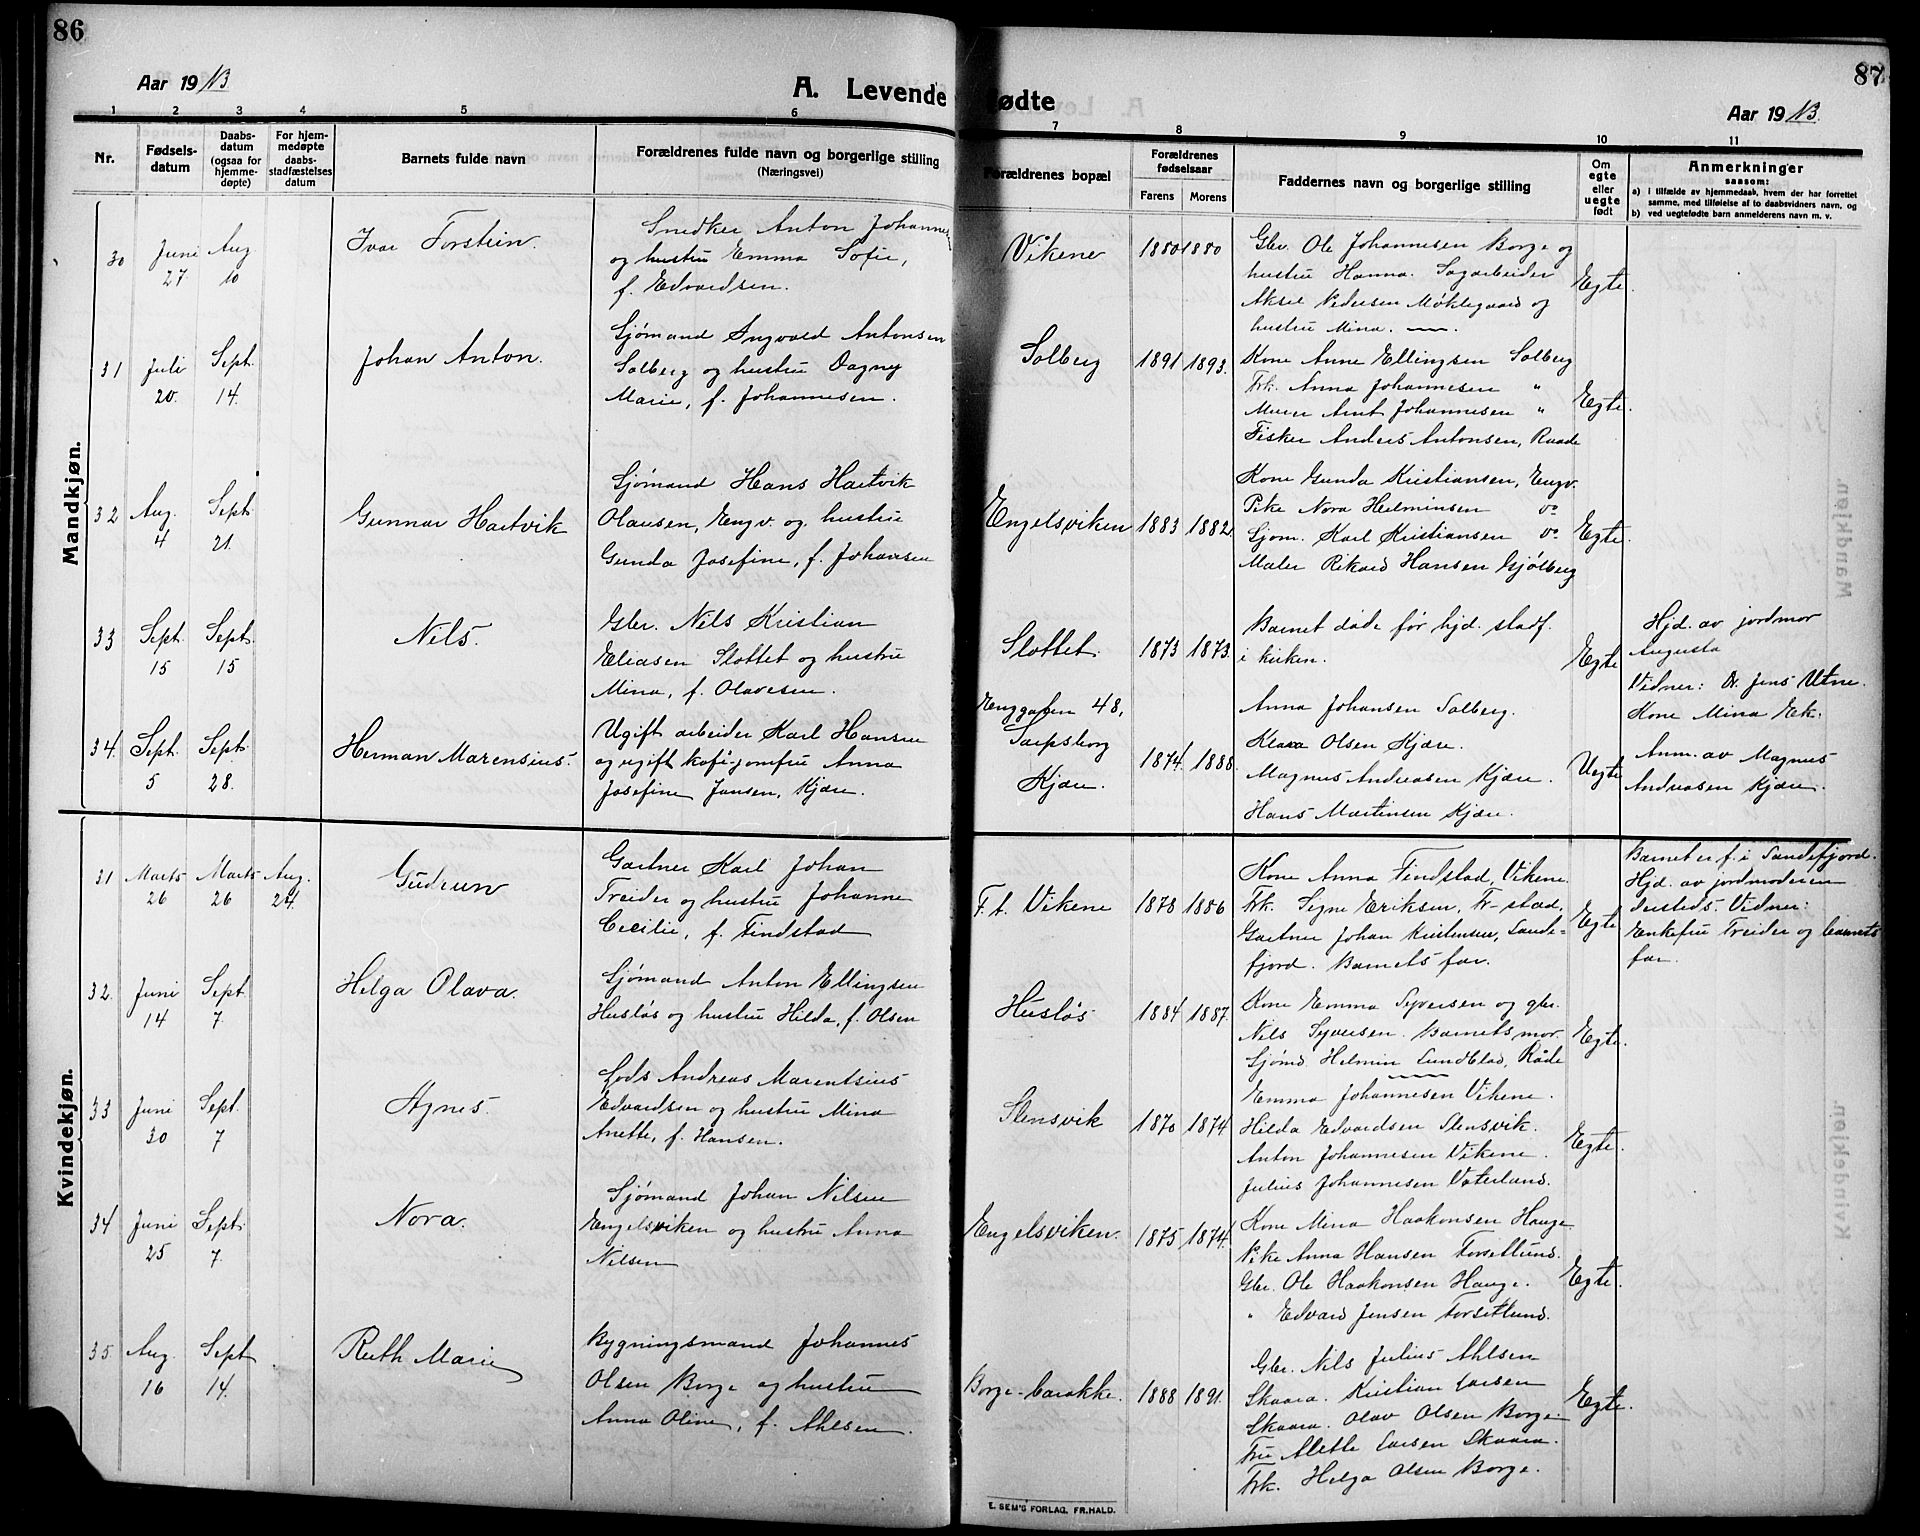 86
Aar 1913
A. Levende
1 2 3 4 5 6
Nr.
Fødsels-
datum
Daabs-
datum
(ogsaa for
hjemme-
døpte)
For hjem-
medøpte
daabs-
stadfæstelses
datum
Barnets fulde navn
Forældrenes fulde navn og borgerlige stilling
(Næringsvei)
Mandkjøn.
30 Juni 27 Aug 10 Ivar Torstein.
Snedker Anton Johannes
og hustru Emma Sofie,
f. Edvardsen.
31 Juli 20. Sept. 14. Johan Anton.
Sjømand Ingvald Antonsen
Solberg og hustru Dagny
Marie, f. Johannesen.
32 Aug. 4 Sept. 21. Gunnar Hartvik
Sjømand Hans Hartvik
Olausen, Engv. og hustru
Gunda Josefine, f. Johansen
33 Sept. 15 Sept. 15 Nils.
Gbr. Nils Kristian
Eliasen Slottet og hustru
Mina, f. Olavesen.
34. Sept. 5 Sept. 28. Herman Marensius.
Ugift arbeider Karl Hansen
og ugift kafé-jomfru Anna
Josefine Jansen, Kjære.
Kvindekjøn.
31 Marts 26 Marts 26 Aug. 24. Gudrun
Gartner Karl Johan
Treider og hustru Johanne
Cecilie, f. Findstad
32. Juni 14 Sept 7. Helga Olava.
Sjømand Anton Ellingsen
Husløs og hustru Hilda, f. Olsen
33 Juni 30 Sept. 7 Agnes.
Lods Andreas Marentsius
Edvardsen og hustru Mina
Anette, f. Hansen.
34 Juni 25 Sept. 7. Nora.
Sjømand Johan Nilsen
Engelsviken og hustru Anna
Nilsen
35 Aug. 16 Sept 14. Ruth Marie
Bygningsmand Johannes
Olsen Borge og hustru
Anna Oline, f. Ahlsen.
87
fødte
Aar 1913.
7 8 9 10 11
Forældrenes bopæl
Forældrenes
fødselsaar
Farens Morens
Faddernes navn og borgerlige stilling
Om
egte
eller
uegte
født
Anmerkninger
saasom:
a) i tilfælde av hjemmedaab, hvem der har forrettet
samme, med tilføielse af to daabsvidners navn, og
b) ved uegtefødte barn anmelderens navn m. v.
Vikene 1880 1880
Gbr. Ole Johannesen Borge og
hustru Hanna. Sagarbeider
Aksel Pedersen Møklegaard og
hustru Mina.
Egte.
Solberg 1891 1893.
Kone Anne Ellingsen Solberg
Frk. Anna Johannesen "
Murer Arnt Johannesen "
Fisker Anders Antonsen, Raade
Egte.
Engelsviken 1883 1882.
Kone Gunda Kristiansen, Engv.
Pike Nora Helminsen do
Sjøm. Karl Kristiansen do
Maler Rikard Hansen Gjølberg
Egte.
Slottet. 1873 1873.
Barnet døde før hjd. stadf.
i kirken.
Egte
Hjd. av jordmor
Augusta
Vidner: Dr. Jens Utne.
Kone Mina Ek.
Enggaten 48,
Sarpsborg
Kjære. 1874. 1888.
Anna Johansen Solberg.
Klara Olsen Kjære.
Magnus Andreasen Kjære.
Hans Martinsen Kjære.
Uegte
Anm. av Magnus
Andreasen Kjære.
F. t. Vikene 1878 1886
Kone Anna Findstad, Vikene.
Frk. Signe Eriksen, Fr-stad.
Gartner Johan Kristensen, Sande-
fjord. Barnets far.
Egte
Barnet er f. i Sandefjord.
Hjd. av jordmoderen
dersteds. Vidner:
Enkefru Treider og barnets
far.
Husløs 1884 1887.
Kone Emma Syversen og gbr.
Nils Syversen. Barnets mor.
Sjømd Helmin Lundblad, Råde
Egte.
Slensvik 1870 1874
Emma Johannesen Vikene.
Hilda Edvardsen Slensvik.
Anton Johannesen Vikene.
Julius Johannesen Vaterland.
Egte.
Engelsviken. 1875 1874.
Kone Mina Haakonsen Hauge
Pike Anna Hansen Forsetlund.
Gbr. Ole Haakonsen Hauge.
" Edvard Jensen Forsetlund.
Egte.
Borge-barakke. 1888 1891.
Gbr. Nils Julius Ahlsen
Skaara. Kristian Larsen
Skaara. Olav Olsen Borge.
Fru Alette Larsen Skaara.
Frk. Helga Olsen Borge.
Egte.
E. SEM'S FORLAG, FR.HALD.